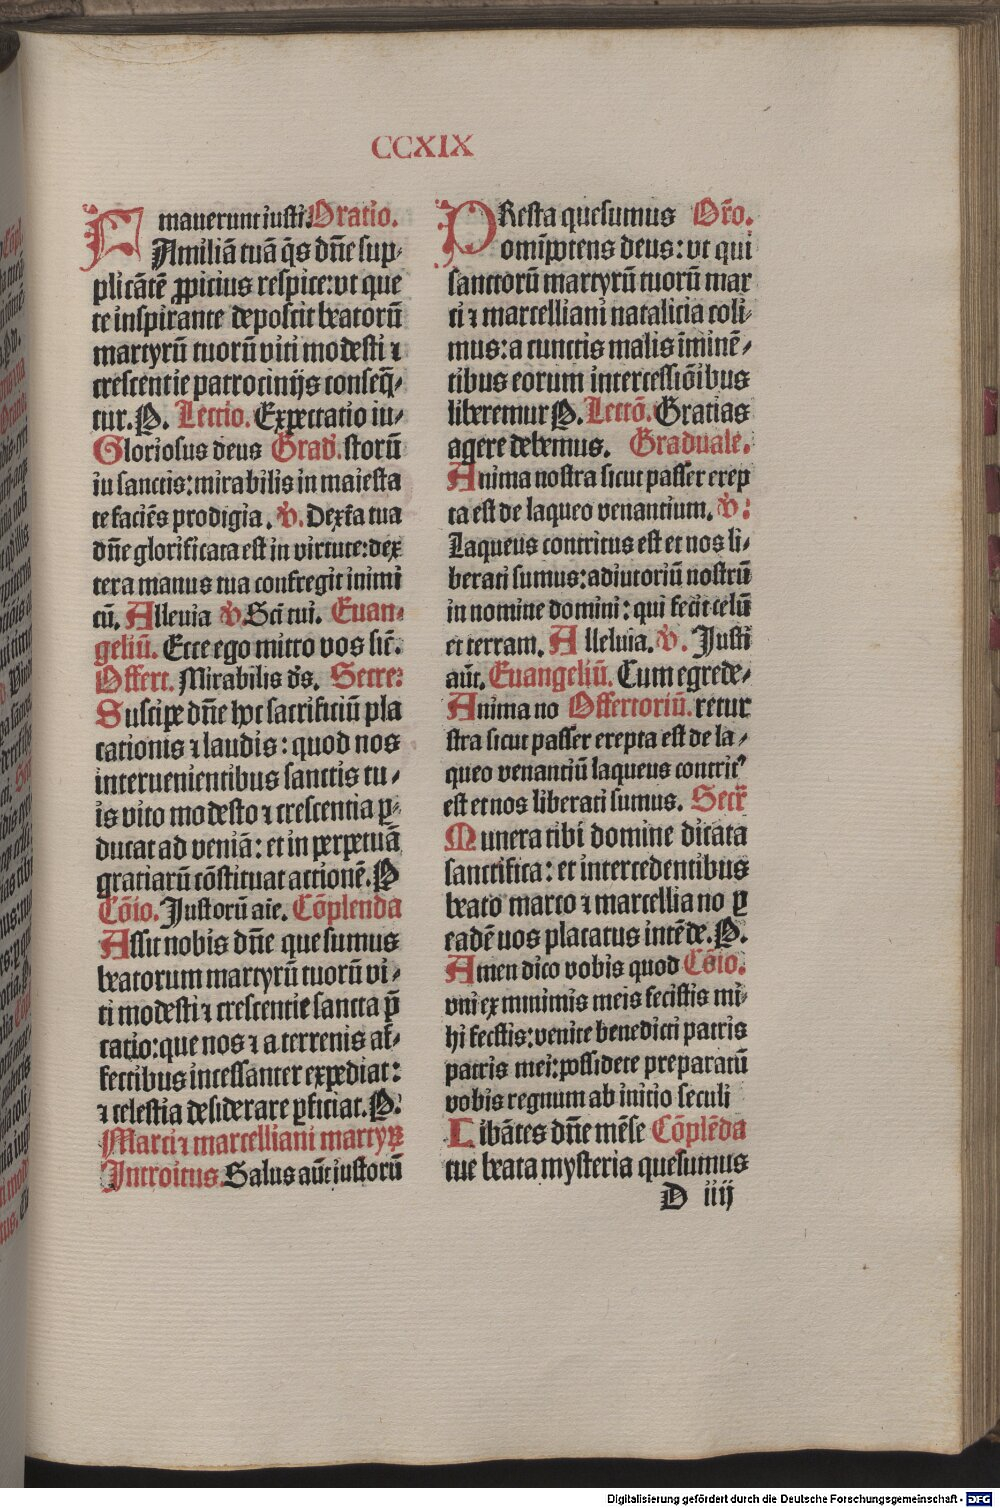 CCXIX
mauerunt iusti. Oratio.
FAmiliã tuã q̃s dñe sup-
plicãtẽ ꝓpicius respice: vt que
te inspirante deposcit beatorũ
martyrũ tuorũ viti modesti ⁊
crescentie patrocinijs conseq̃-
tur. P. Lectio. Expectatio iu-
Gloriosus deus Grad̃. storũ
in sanctis: mirabilis in maiesta
te faciẽs prodigia. v̓. Dext̃a tua
dñe glorificata est in virtute: dex
tera manus tua confregit inimi
cũ. Alleuia v̓. Scti tui. Euan-
geliũ. Ecce ego mitto vos sic̃.
Offert. Mirabilis ds̃. Secre:
Suscipe dñe hoc sacrificiũ pla
cationis ⁊ laudis: quod nos
interuenientibus sanctis tu-
is vito modesto ⁊ crescentia ꝑ-
ducat ad veniã: et in perpetuã
gratiarũ cõstituat actionẽ. P
Cõio. Iustorũ aie. Cõplenda
Assit nobis dñe quesumus
beatorum martyrũ tuorũ vi-
ti modesti ⁊ crescentie sancta p̃
catio: que nos ⁊ a terrenis af-
fectibus incessanter expediat:
⁊ celestia desiderare ꝓficiat. P.
Marci ⁊ marcelliani martyrꝝ
Introitus. Salus aũt iustorũ
PResta quesumus Or̃o.
omĩpotens deus: vt qui
sanctorũ martyrũ tuorũ mar
ci ⁊ marcelliani natalicia coli-
mus: a cunctis malis ĩminẽ-
tibus eorum intercessiõibus
liberemur P. Lectõ. Gratias
agere debemus. Graduale.
Anima nostra sicut passer erep
ta est de laqueo venantium. v̓:
Laqueus contritus est et nos li-
berati sumus: adiutoriũ nostrũ
in nomine domini: qui fecit celũ
et terram. Alleluia. v̓. Iusti
aũt. Euangeliũ. Cum egrede-
Anima no Offertoriũ. retur
stra sicut passer erepta est de la-
queo venantiũ laqueus contritꝰ
est et nos liberati sumus. Secr̃
Munera tibi domine dicata
sanctifica: et intercedentibus
beato marco ⁊ marcelliano ꝑ
eadẽ nos placatus intẽde. P.
Amen dico vobis quod Cõio.
vni ex minimis meis fecistis mi-
hi fecistis: venite benedicti patris
patris mei: possidete preparatũ
vobis regnum ab inicio seculi
Libãtes dñe mẽse Cõplẽda
tue beata mysteria quesumus
D iiij
Digitalisierung gefördert durch die Deutsche Forschungsgemeinschaft - DFG